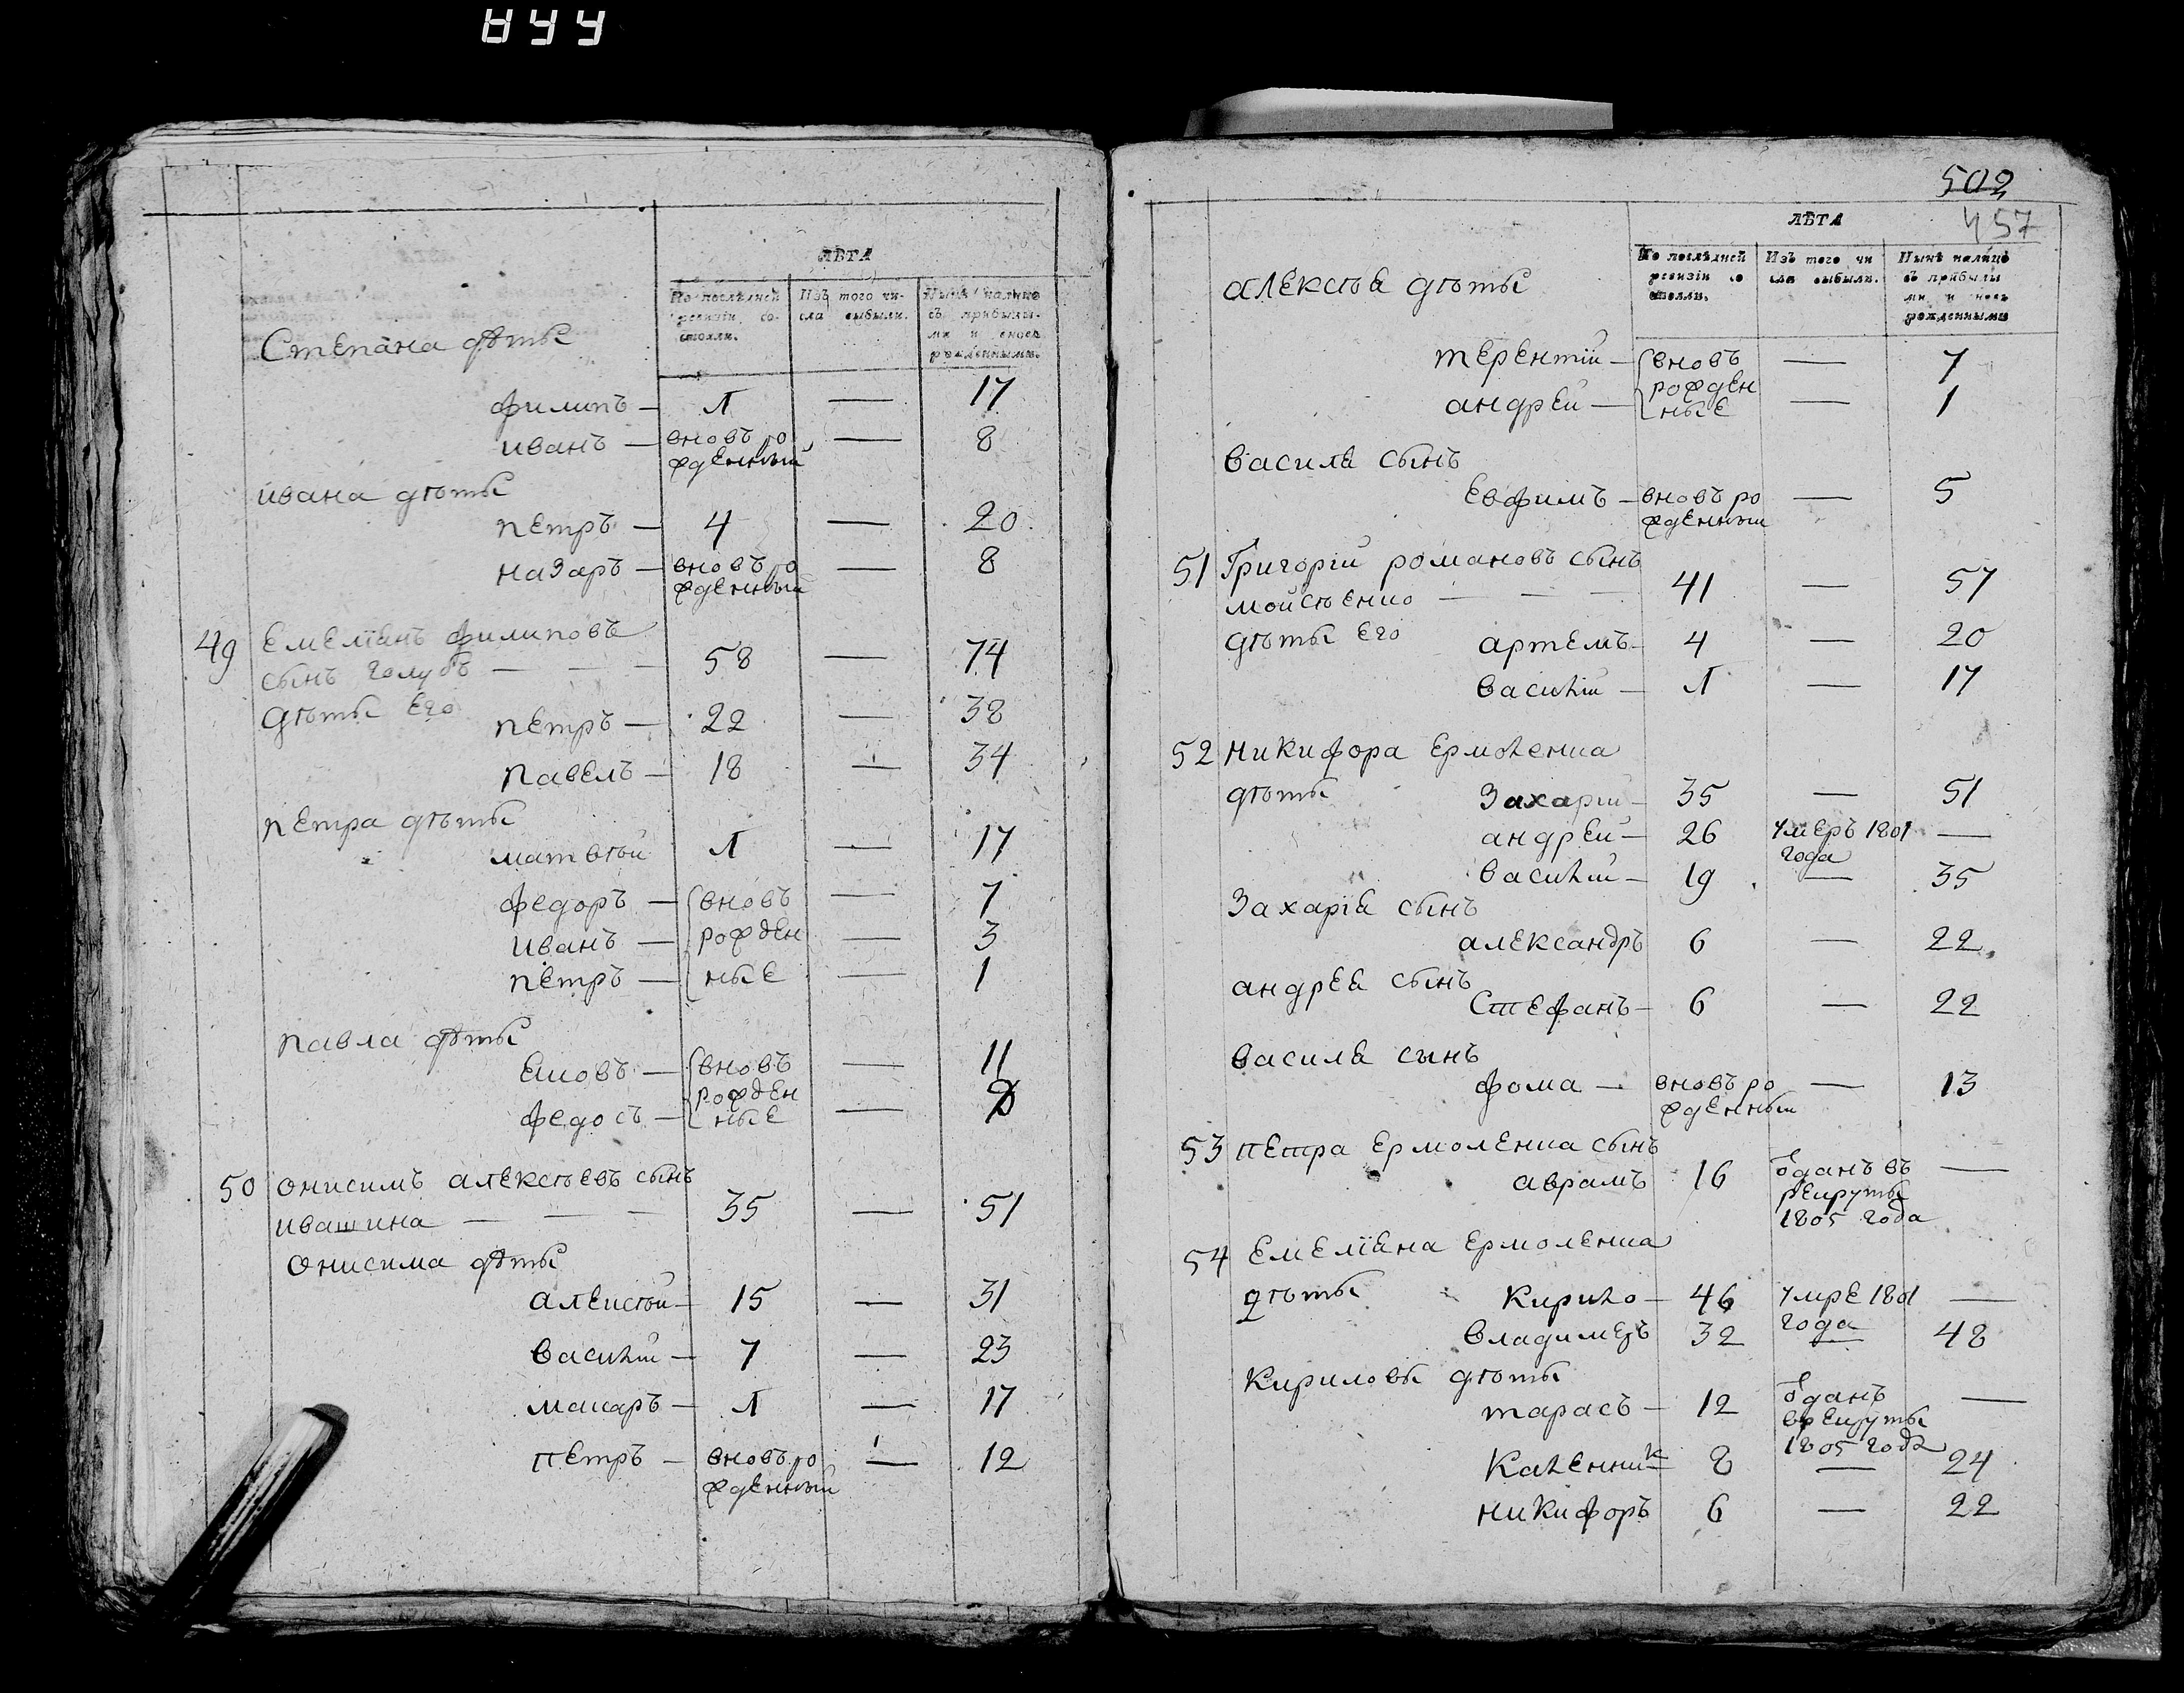 ЛѢТА
По послѣдней ревизіи состояли.
Изъ того числа выбыли.
Нынѣ на лицо съ прибылыми и вновь рожденными.
Степана дѣти
филипъ — 1 — 17
иванъ — вновь рожденный — 8
ивана дѣти
петръ — 4 — 20
назаръ — вновь рожденный — 8
49 Емелїанъ филиповъ
сынъ голубъ — 58 — 74
дѣти его
петръ — 22 — 38
павелъ — 18 — 34
петра дѣти
матвѣй 1 — 17
федоръ — вновь — 7
иванъ — рожден — 3
петръ — ные — 1
павла дѣти
вновь — 11
рожден
федосъ — ные —
50 онисимъ алексѣевъ сынъ
ивашина — 35 — 51
онисима дѣти
алексѣй — 15 — 31
василій — 7 — 23
макаръ — 1 — 17
петръ — вновь рожденный — 12
502
457
ЛѢТА
По послѣдней ревизіи состояли.
Изъ того числа выбыли.
Нынѣ налицо съ прибылыми и вновь рожденными
алексѣя дѣти
терентїй — вновь — 7
рожден
андрей — ные — 1
василя сынъ
Евфимъ — вновь рожденный — 5
51 Григорій романовъ сынъ
мойсѣенко — 41 — 57
дѣти его
артемъ — 4 — 20
василій — 1 — 17
52 никифора Ермоленка
дѣти
Захарій — 35 — 51
андрей — 26 умеръ 1801 года —
василій — 19 — 35
Захарія сынъ
александръ 6 — 22
андрея сынъ
Стефанъ — 6 — 22
василя сынъ
фома — вновь рожденный — 13
53 петра Ермоленка сынъ
аврамъ 16 ѿданъ въ рекруты 1805 года —
54 Емелїяна Ермоленка
дѣти
Кирило — 46 умре 1801 года —
владимеръ 32 — 48
Кириловы дѣти
тарасъ — 12 ѿданъ врекруты 1805 года —
Каленникъ 8 — 24
никифоръ 6 — 22